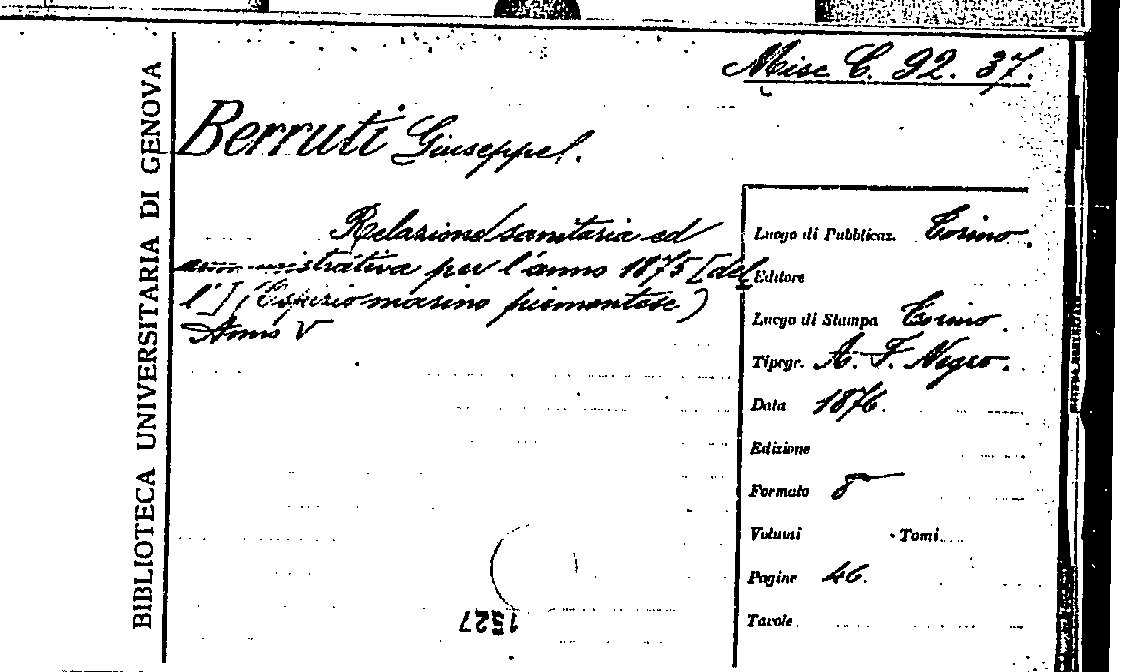 Misc C. 92. 37.
BIBLIOTECA UNIVERSITARIA DI GENOVA
Berruti Giuseppe.
Relazione sanitaria ed
amministrativa per l'anno 1875 [del
l'] (Ospizio marino piemontese)
Anno V
Luogo di Pubblicaz. Torino.
Editore
Luogo di Stampa Torino.
Tipogr. A. F. Negro.
Data 1876.
Edizione
Formato 8
Volumi Tomi
Pagine 46.
Tavole
1527